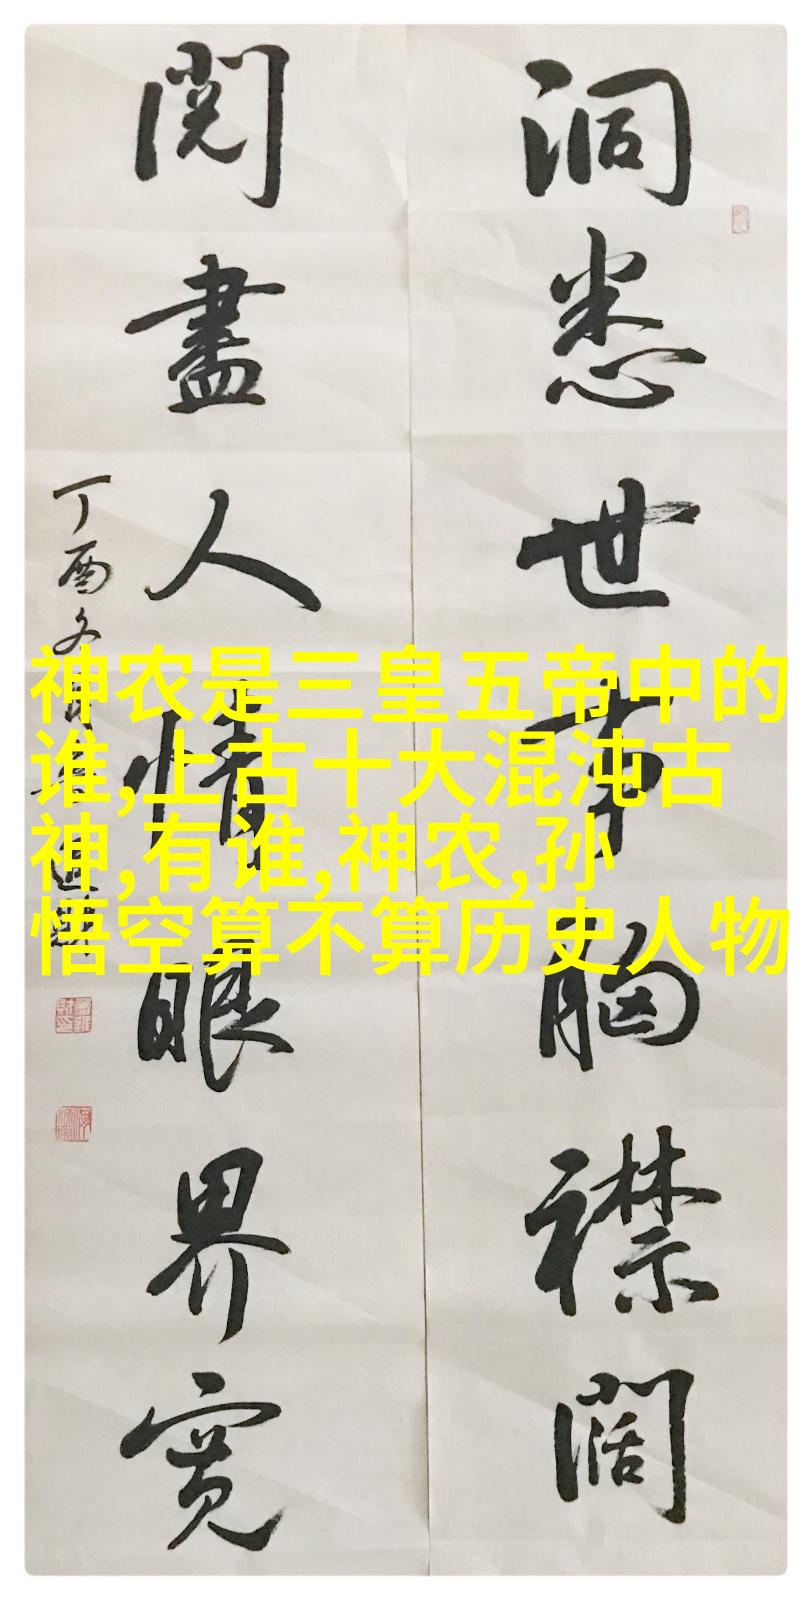 洞悉世事胸襟阔
阅盡人情眼界宽
丁酉
神农是三皇五帝中的
谁,上古十大混沌古
神,有谁,神农,孙
悟空算不算历史人物